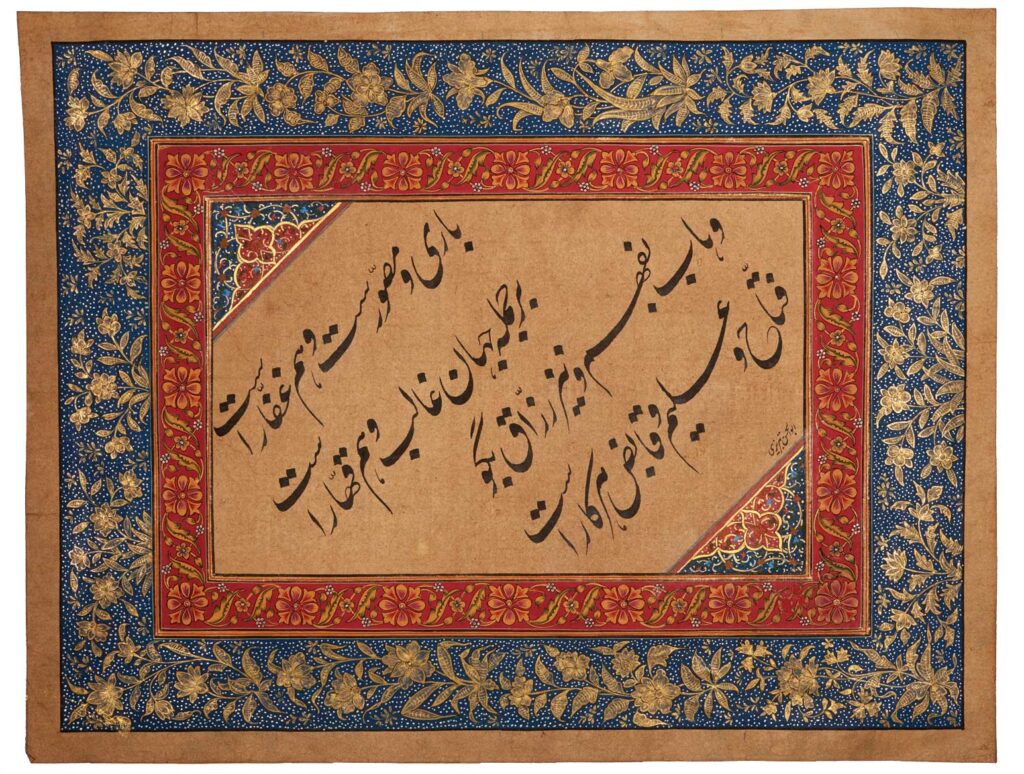 باری و مصوّرست و هم غفّار است
بر جمله جهان غالب و هم قهّار است
وهاب بفهم و نیز رزّاق بگو
فتّاح و علیم و قابض هر کار است